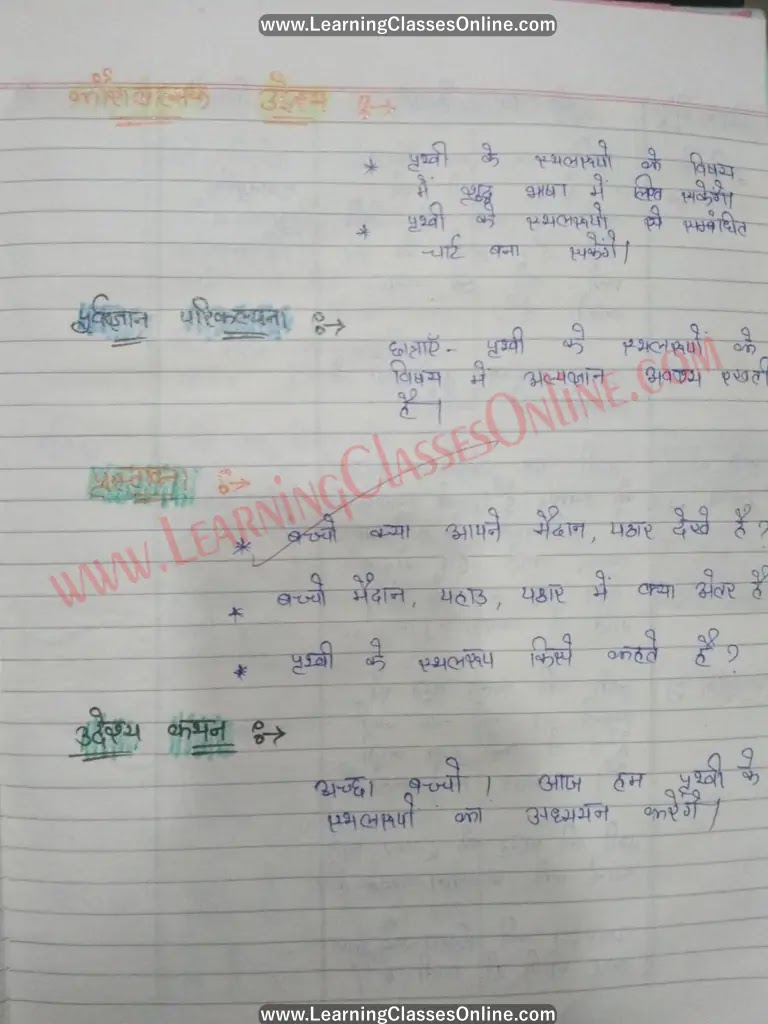 www.LearningClassesOnline.com
कौशलात्मक उद्देश्य :→
* पृथ्वी के स्थलरूपों के विषय
में शुद्ध भाषा में लिख सकेंगे।
* पृथ्वी के स्थलरूपों से सम्बंधित
चार्ट बना सकेंगे।
पूर्वज्ञान परिकल्पना :→
छात्राएँ - पृथ्वी के स्थलरूपों के
विषय में अल्पज्ञान अवश्य रखती
है।
www.LearningClassesOnline.com
प्रस्तावना :→
* बच्चों क्या आपने मैदान, पठार देखे है?
* बच्चों मैदान, पहाड, पठार में क्या अंतर है
* पृथ्वी के स्थलरूप किसे कहते है?
उद्देश्य कथन :→
अच्छा बच्चों। आज हम पृथ्वी के
स्थलरूपों का अध्ययन करेंगे।
www.LearningClassesOnline.com